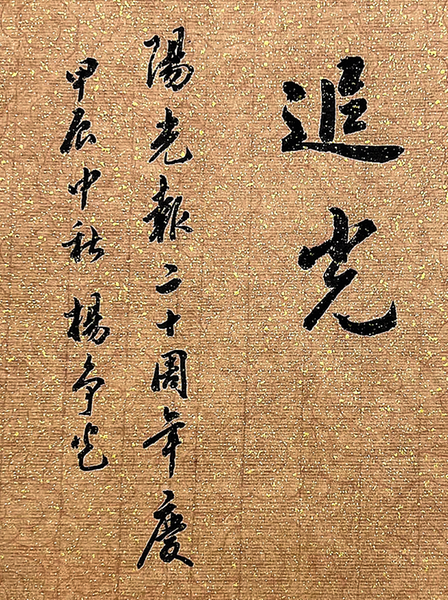 追光
陽光報二十周年慶
甲辰中秋 楊争光